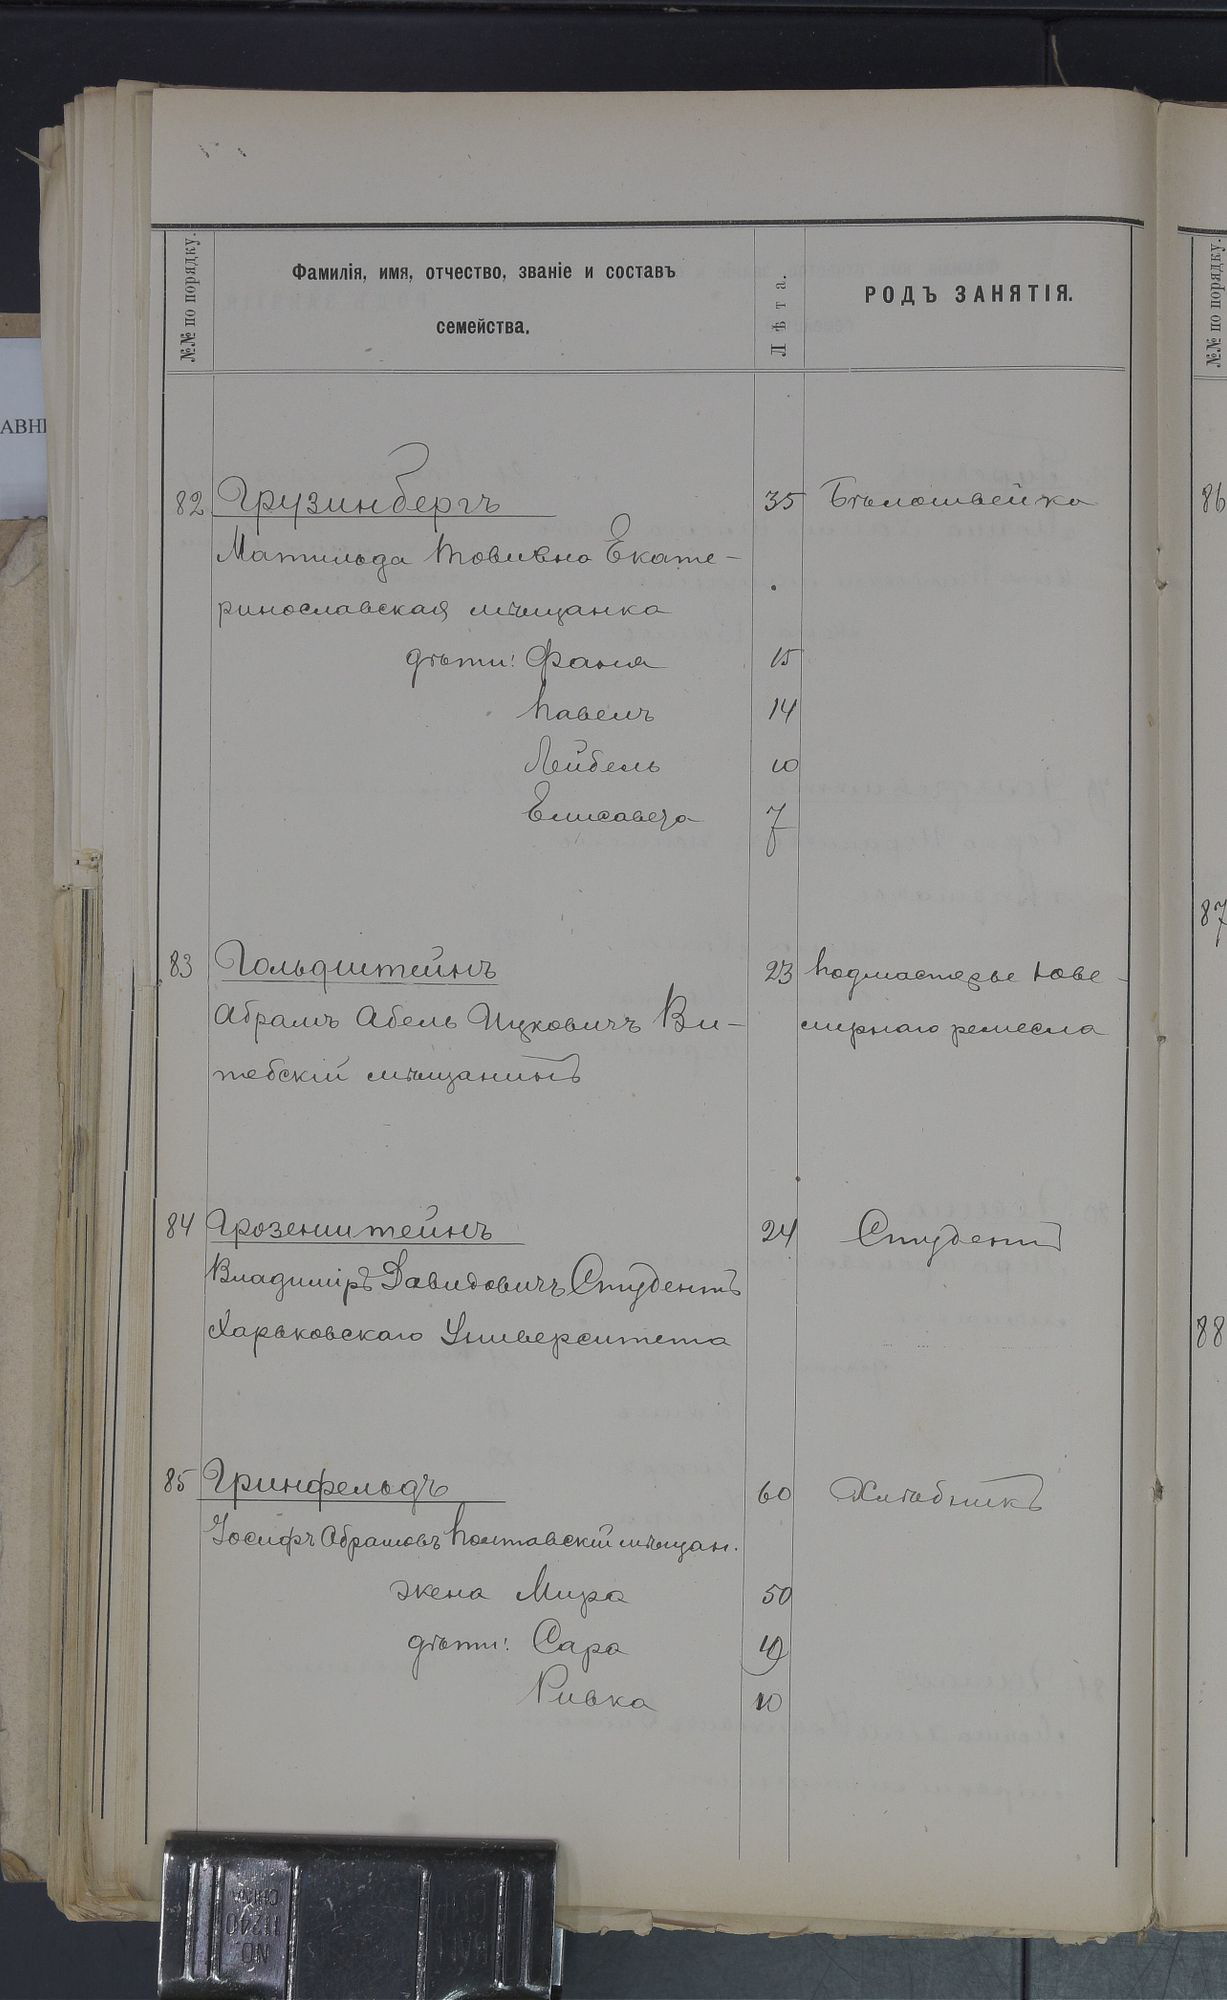 №№ по порядку.
Фамилія, имя, отчество, званіе и составъ
семейства.
Лѣта.
РОДЪ ЗАНЯТІЯ.
№№ по порядку.
АВН
82 Грузинбергъ 35 Бѣлошвейка
Матильда Товивна Екате-
ринославская мѣщанка
дѣти: Фаня 15
Павелъ 14
Лейбель 10
Елисавета 7
83 Гольдштейнъ 23 Подмастерье Юве-
Абрамъ Абель Ицковичъ Ви- лирнаго ремесла
тебскій мѣщанинъ
84 Грозенштейнъ 24 Студентъ
Владиміръ Давидовичъ Студентъ
Харьковскаго Университета
85 Гринфельдъ 60 Хлѣбникъ
Іосифъ Абрамовъ Полтавскій мѣщан.
жена Мира 50
дѣти: Сара
Ривка 10
86
87
88
NO.
11240